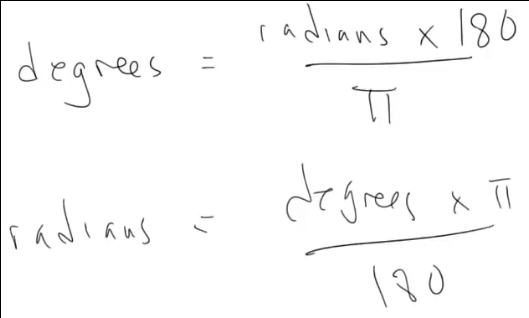 degrees = radians x 180
π
radians = degrees x π
180